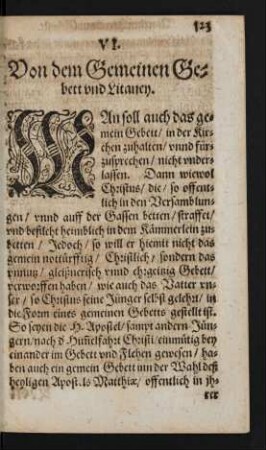 123
VI.
Von dem Gemeinen Ge-
bett vnd Litaney.
MAn soll auch das ge-
mein Gebett / in der Kir-
chen zuhalten / vnnd für-
zusprechen / nicht vnder-
lassen. Dann wiewol
Christus / die / so offent-
lich in den Versamblun-
gen / vnnd auff der Gassen betten / straffet /
vnd befilcht heimblich in dem Kämmerlein zu-
betten / Jedoch / so will er hiemit nicht das
gemein notturfftig / Christlich / sondern das
vnnütz / gleißnerisch vnnd ehrgeitzig Gebett /
verworffen haben / wie auch das Vatter vn-
ser / so Christus seine Jünger selbst gelehrt / in
die Form eines gemeinen Gebetts gestelt ist.
So seyen die H. Apostel / sampt andern Jün-
gern / nach d Himelfahrt Christi / einmütig bey
einander im Gebett vnd Flehen gewesen / ha-
ben auch ein gemein Gebett umb der Wahl deß
heyligen Apostels Matthiæ / offentlich in jh-
rer